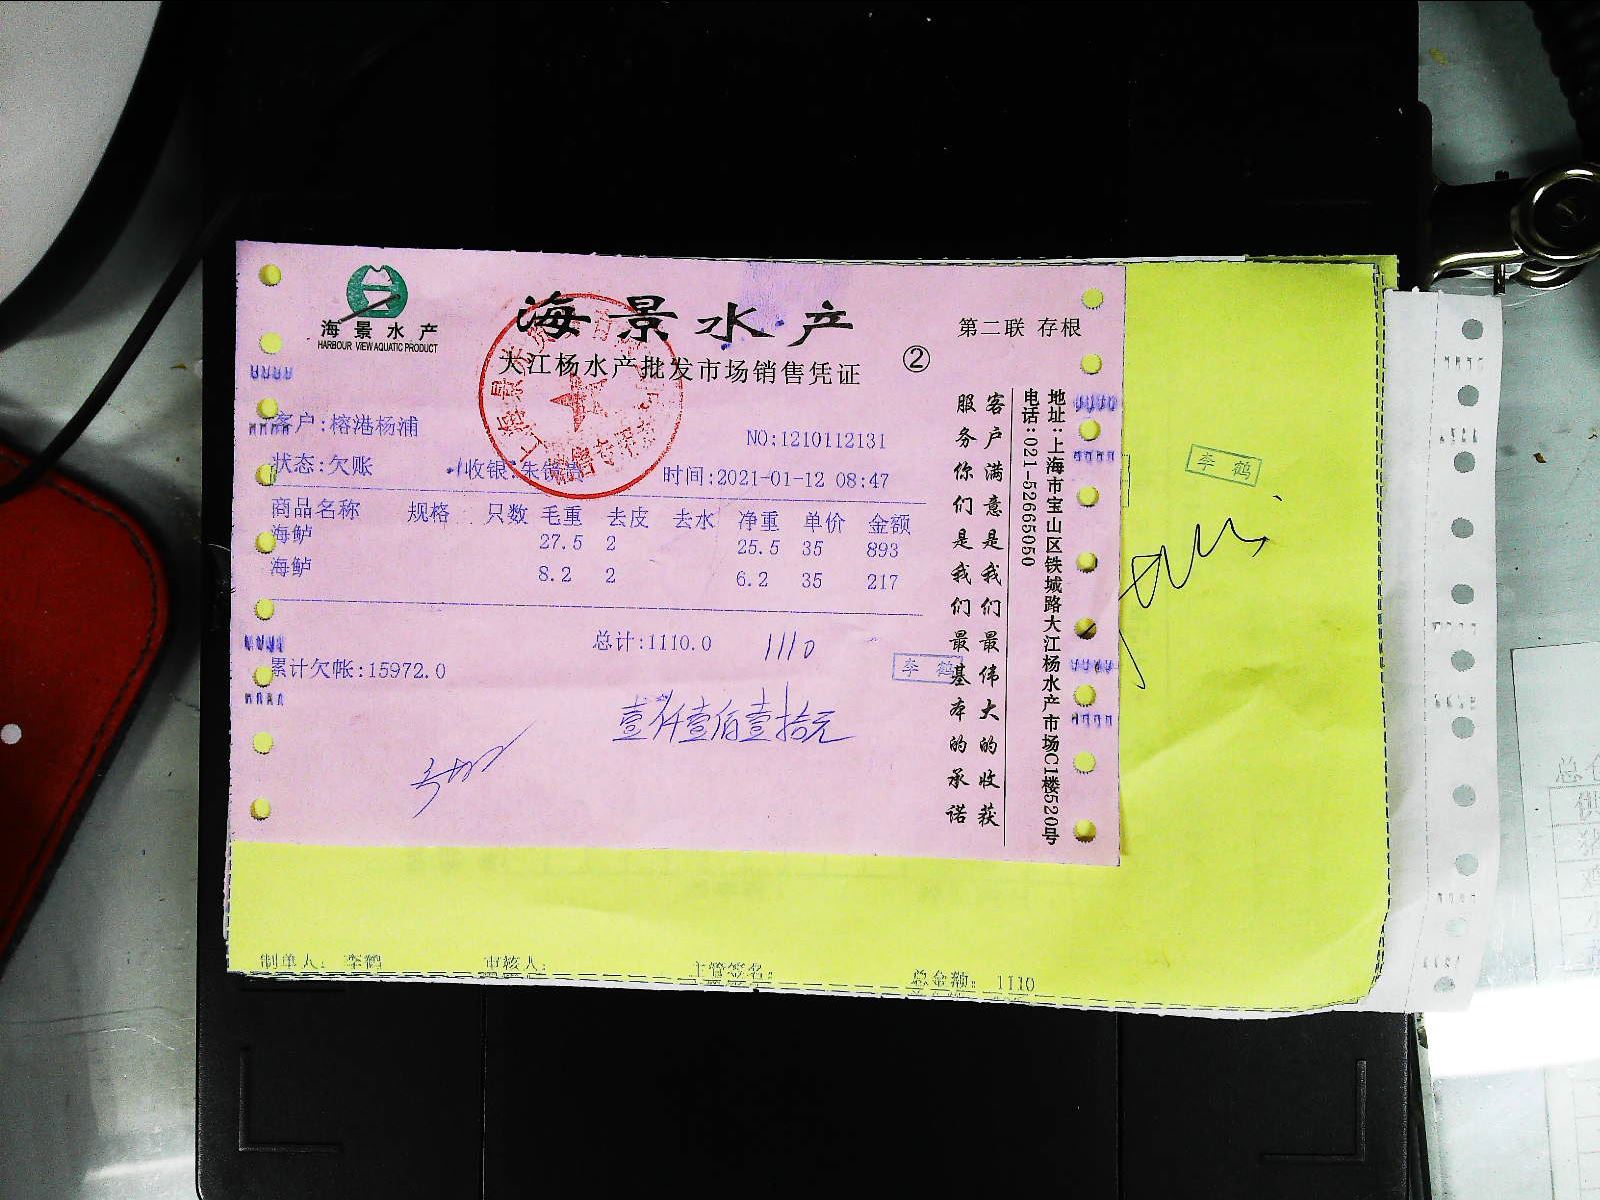 海景水产
HARBOUR VIEW AQUATIC PRODUCT
海景水产
大江杨水产批发市场销售凭证
②
第二联 存根
客户:榕港杨浦
NO:1210112131
状态:欠账
收银:朱
时间:2021-01-12 08:47
商品名称 规格 只数 毛重 去皮 去水 净重 单价 金额
海鲈 27.5 2 25.5 35 893
海鲈 8.2 2 6.2 35 217
总计:1110.0
1110
累计欠帐:15972.0
李鹤
壹仟壹佰壹拾元
客户满意是我们最伟大的收获
服务你们是我们最基本的承诺
地址:上海市宝山区铁城路大江杨水产市场C1楼520号
电话:021-52665050
李鹤
制单人: 李鹤 审核人: 主管签名: 总金额: 1110